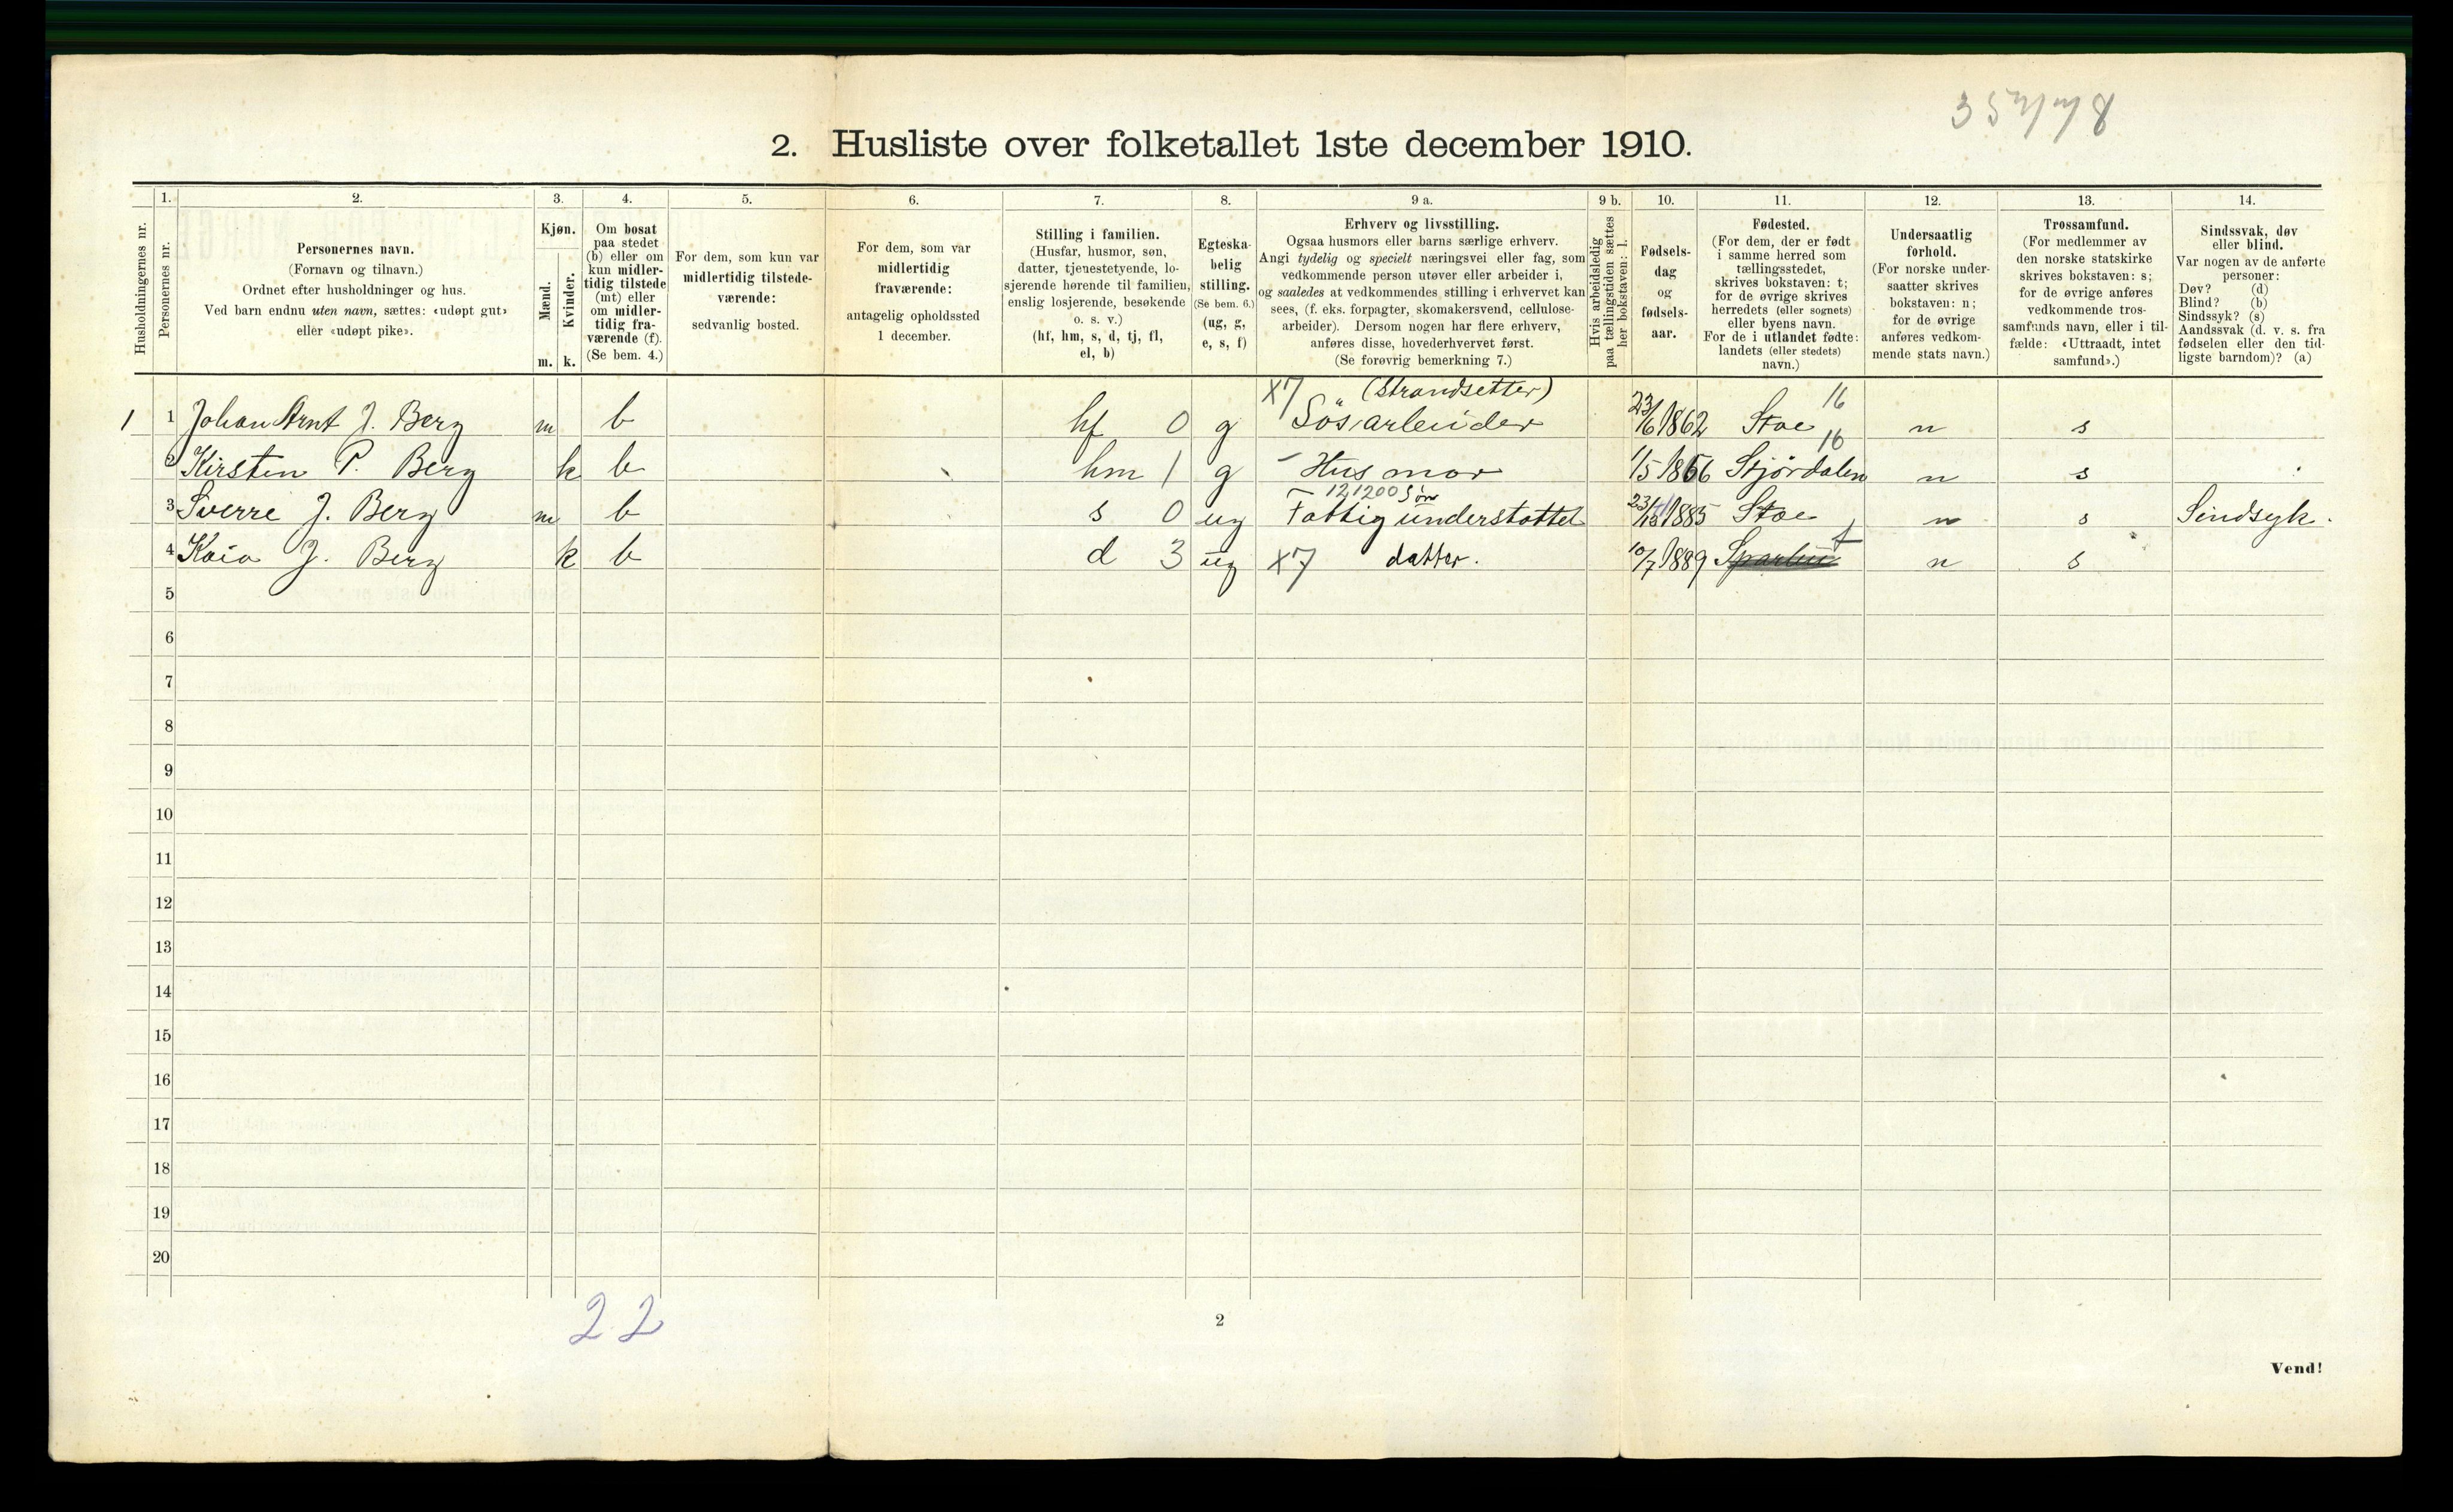 2. Husliste over folketallet 1ste december 1910.
Husholdningernes nr.
1.
Personernes nr.
2.
Personernes navn.
(Fornavn og tilnavn.)
Ordnet efter husholdninger og hus.
Ved barn endnu uten navn, sættes: «udøpt gut»
eller «udøpt pike».
3.
Kjøn.
Mænd.
Kvinder.
m. k.
4.
Om bosat
paa stedet
(b) eller om
kun midler-
tidig tilstede
(mt) eller
om midler-
tidig fra-
værende (f).
(Se bem. 4.)
5.
For dem, som kun var
midlertidig tilstede-
værende:
sedvanlig bosted.
6.
For dem, som var
midlertidig
fraværende:
antagelig opholdssted
1 december.
7.
Stilling i familien.
(Husfar, husmor, søn,
datter, tjenestetyende, lo-
sjerende hørende til familien,
enslig losjerende, besøkende
o. s. v.)
(hf, hm, s, d, tj, fl,
el, b)
8.
Egteska-
belig
stilling.
(Se bem. 6.)
(ug, g,
e, s, f)
9 a.
Erhverv og livsstilling.
Ogsaa husmors eller barns særlige erhverv.
Angi tydelig og specielt næringsvei eller fag, som
vedkommende person utøver eller arbeider i,
og saaledes at vedkommendes stilling i erhvervet kan
sees, (f. eks. forpagter, skomakersvend, cellulose-
arbeider). Dersom nogen har flere erhverv,
anføres disse, hovederhvervet først.
(Se forøvrig bemerkning 7.)
9 b.
Hvis arbeidsledig
paa tællingstiden sættes
her bokstaven: l.
10.
Fødsels-
dag
og
fødsels-
aar.
11.
Fødested.
(For dem, der er født
i samme herred som
tællingsstedet,
skrives bokstaven: t;
for de øvrige skrives
herredets (eller sognets)
eller byens navn.
For de i utlandet fødte:
landets (eller stedets)
navn.)
12.
Undersaatlig
forhold.
(For norske under-
saatter skrives
bokstaven: n;
for de øvrige
anføres vedkom-
mende stats navn.)
13.
Trossamfund.
(For medlemmer av
den norske statskirke
skrives bokstaven: s;
for de øvrige anføres
vedkommende tros-
samfunds navn, eller i til-
fælde: «Uttraadt, intet
samfund».)
14.
Sindssvak, døv
eller blind.
Var nogen av de anførte
personer:
Døv? (d)
Blind? (b)
Sindssyk? (s)
Aandssvak (d. v. s. fra
fødselen eller den tid-
ligste barndom)? (a)
X7 (Strandsetter) 16
1 1 Johan Arnt J. Berg m b hf 0 g Søsarbeider 23/6 1862 Stoe n s
16
2 Kirsten P. Berg k b hm 1 g - Husmor 1/5 1866 Stjørdalen n s
121200 Søn
3 Sverre J. Berg m b s 0 ug Fattigunderstøttet 1885 Stoe n s Sindsyk.
t
4 Kaia J. Berg k b d 3 ug X7 datter. 10/7 1889 n s
5
6
7
8
9
10
11
12
13
14
15
16
17
18
19
20
2 2
2
Vend!